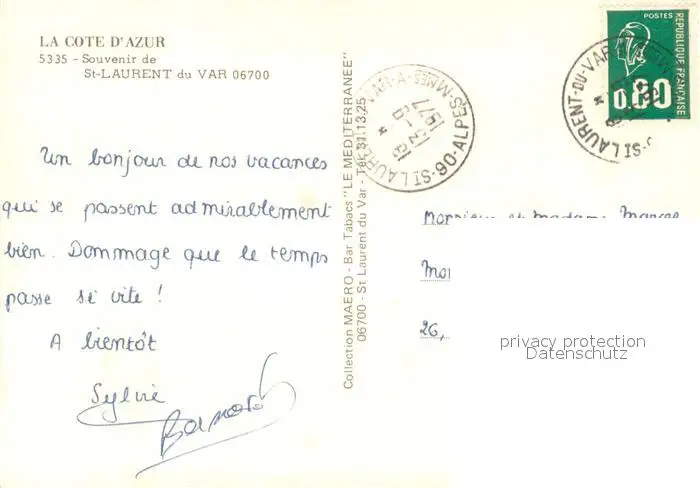 LA COTE D'AZUR
5335 - Souvenir de
St-LAURENT du VAR 06700
Un bonjour de nos vacances
qui se passent admirablement
bien. Dommage que le temps
passe si vite !
A bientôt
Sylvie
Collection MAERO - Bar Tabacs "LE MEDITERRANEE"
06700 - St Laurent du Var - Tél. 31.13.25
18 H
15 - 9
1977
ALPES-MMES
POSTES
REPUBLIQUE FRANÇAISE
0,80
ST LAURENT-DU-VAR
Monsieur et Madame Marcel
26,
privacy protection
Datenschutz